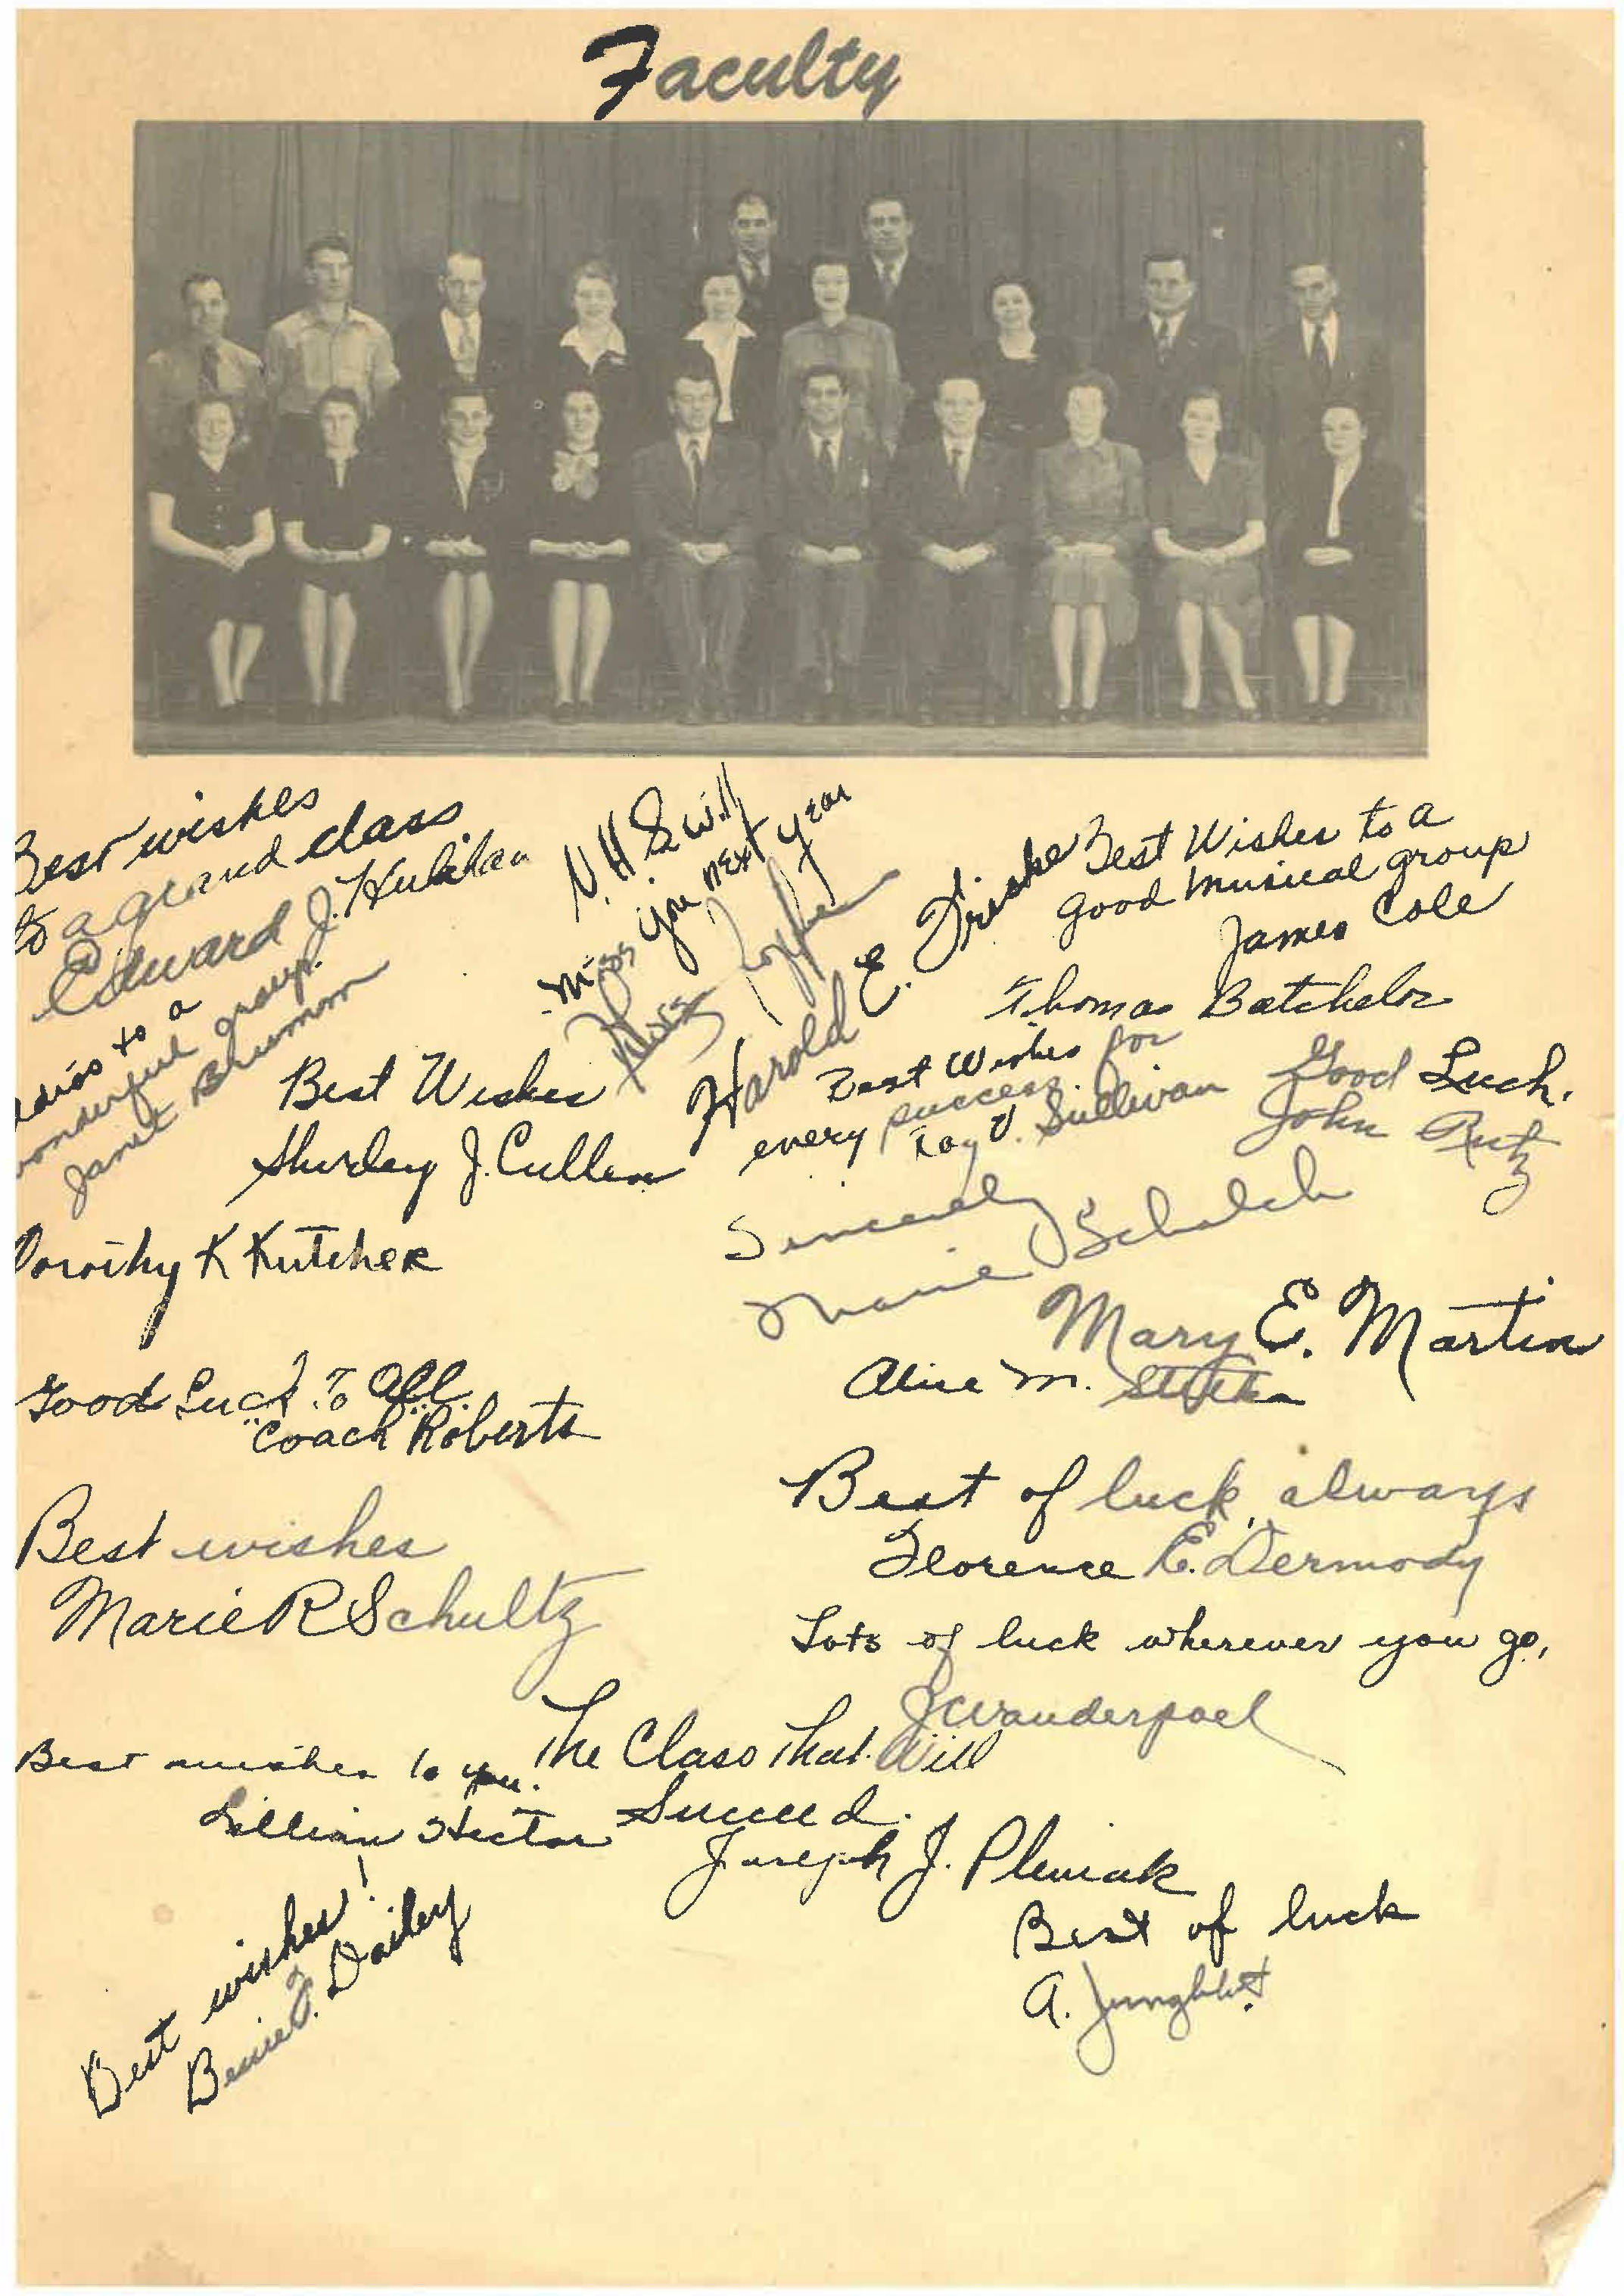 Faculty
Best wishes
to a grand class
Edward J.
adios to a
wonderful group.
Janet Brumm
N.H.S will
miss you next year
Harold E. Friske
Best Wishes to a
good musical group
James Cole
Thomas Batchelor
Best Wishes
Shirley J. Cullen
Best Wishes for
every success.
Sullivan
Good Luck.
John Rutz
Sincerely
Marie Schalch
Dorothy K Kutcher
Mary E. Martin
Alice M.
Good Luck To All.
"Coach" Roberts
Best of luck always,
Florence E. Dermody
Best wishes
Marie R Schultz
Lots of luck wherever you go,
J Vanderpoel
Best wishes to you.
Lillian Hector
The Class That Will
Succeed.
Joseph J. Pleniak
Best wishes!
Bessie Dailey
Best of luck
A. Jungblut